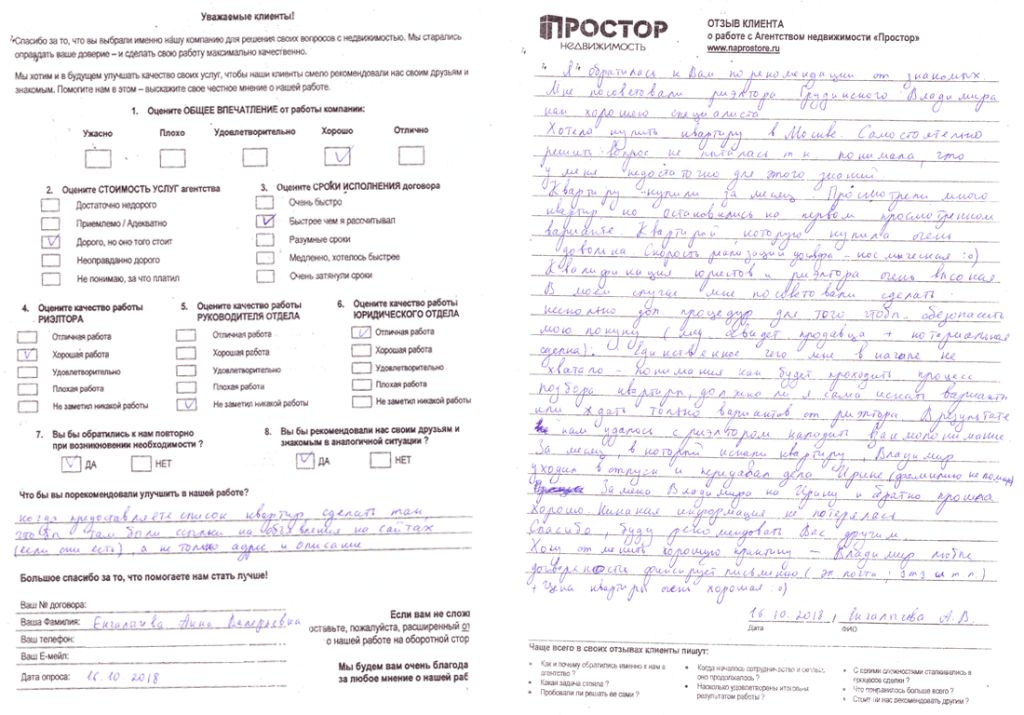 Уважаемые клиенты!
Спасибо за то, что вы выбрали именно нашу компанию для решения своих вопросов с недвижимостью. Мы старались
оправдать ваше доверие – и сделать свою работу максимально качественно.
Мы хотим и в будущем улучшать качество своих услуг, чтобы наши клиенты смело рекомендовали нас своим друзьям и
знакомым. Помогите нам в этом – выскажите свое честное мнение о нашей работе.
1. Оцените ОБЩЕЕ ВПЕЧАТЛЕНИЕ от работы компании:
Ужасно Плохо Удовлетворительно Хорошо Отлично
2. Оцените СТОИМОСТЬ УСЛУГ агентства
Достаточно недорого
Приемлемо / Адекватно
Дорого, но оно того стоит
Неоправданно дорого
Не понимаю, за что платил
3. Оцените СРОКИ ИСПОЛНЕНИЯ договора
Очень быстро
Быстрее чем я рассчитывал
Разумные сроки
Медленно, хотелось быстрее
Очень затянули сроки
4. Оцените качество работы
РИЭЛТОРА
Отличная работа
Хорошая работа
Удовлетворительно
Плохая работа
Не заметил никакой работы
5. Оцените качество работы
РУКОВОДИТЕЛЯ ОТДЕЛА
Отличная работа
Хорошая работа
Удовлетворительно
Плохая работа
Не заметил никакой работы
6. Оцените качество работы
ЮРИДИЧЕСКОГО ОТДЕЛА
Отличная работа
Хорошая работа
Удовлетворительно
Плохая работа
Не заметил никакой работы
7. Вы бы обратились к нам повторно
при возникновении необходимости ?
ДА НЕТ
8. Вы бы рекомендовали нас своим друзьям и
знакомым в аналогичной ситуации ?
ДА НЕТ
Что бы вы порекомендовали улучшить в нашей работе?
когда предоставляете список квартир, сделать так
чтобы там были ссылки на объявления на сайтах
(если они есть), а не только адрес и описание
Большое спасибо за то, что помогаете нам стать лучше!
Ваш № договора:
Ваша Фамилия: Анна Валерьевна
Ваш телефон:
Ваш Е-мейл:
Дата опроса: 16.10 2018
Если вам не сложн
оставьте, пожалуйста, расширенный от
о нашей работе на оборотной стор
Мы будем вам очень благода
за любое мнение о нашей раб
ПРОСТОР
НЕДВИЖИМОСТЬ
ОТЗЫВ КЛИЕНТА
о работе с Агентством недвижимости «Простор»
www.naprostore.ru
Я обратилась к Вам по рекомендации от знакомых.
Мне посоветовали риэлтора Грудинского Владимира
как хорошего специалиста
Хотела купить квартиру в Москве. Самостоятельно
решить вопрос не пыталась т к понимала, что
у меня недостаточно для этого знаний.
Квартиру купили за месяц Просмотрели много
квартир, но остановились на первом просмотренном
варианте. Квартирой, которую купила очень
довольна Скорость реализации договора - космическая :о)
Квалификация юристов и риэлтора очень высокая.
В моем случае мне посоветовали сделать
несколько доп процедур для того чтобы обезопасить
мою покупку ( освидет продавца + нотариальная
сделка). Единственное чего мне в начале не
хватало - понимания как будет проходить процесс
подбора квартиры, должна ли я сама искать варианты
или ждать только вариантов от риэлтора В результате
нам удалось с риэлтором наладить взаимопонимание.
За месяц, в который искали квартиру, Владимир
уходил в отпуск и передавал дела Ирине (фамилию не помню)
Замена Владимира на Ирину и обратно прошла
хорошо. Никакая информация не потерялась
Спасибо, буду рекомендовать Вас другим
Хочу отметить хорошую практику - Владимир любые
договоренности фиксирует письменно ( эл почта, смс и т п.)
+ Цена квартиры очень хорошая :о)
16.10.2018, А.В.
Дата ФИО
Чаще всего в своих отзывах клиенты пишут:
• Как и почему обратились именно к нам в
агентство ?
• Какая задача стояла ?
• Пробовали ли решать ее сами ?
• Когда началось сотрудничество и сколько
оно продолжалось ?
• Насколько удовлетворены итоговым
результатом работы ?
• С какими сложностями сталкивались в
процессе сделки ?
• Что понравилось больше всего ?
• Стоит ли нас рекомендовать другим ?